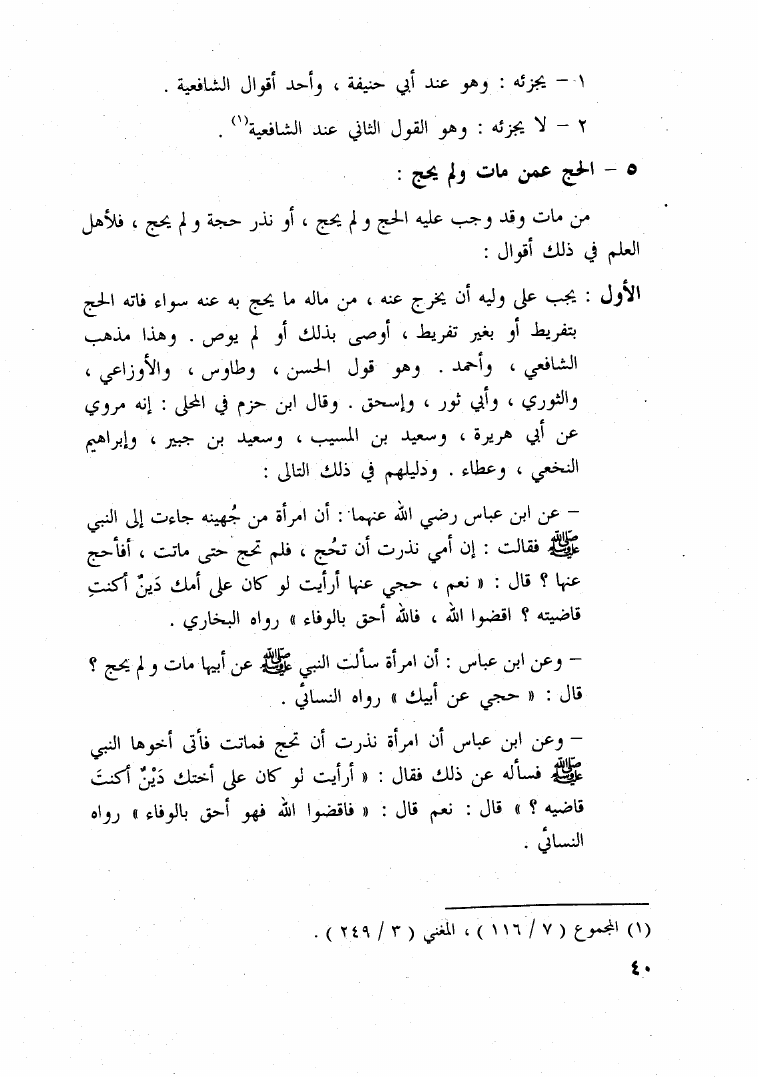 ١ – يجزئه : وهو عند أبي حنيفة ، وأحد أقوال الشافعية .
٢ – لا يجزئه : وهو القول الثاني عند الشافعية(١) .
٥ – الحج عمن مات ولم يحج :
من مات وقد وجب عليه الحج ولم يحج ، أو نذر حجة ولم يحج ، فلأهل
العلم في ذلك أقوال :
الأول : يجب على وليه أن يخرج عنه ، من ماله ما يحج به عنه سواء فاته الحج
بتفريط أو بغير تفريط ، أوصى بذلك أو لم يوص . وهذا مذهب
الشافعي ، وأحمد . وهو قول الحسن ، وطاوس ، والأوزاعي ،
والثوري ، وأبي ثور ، وإسحق . وقال ابن حزم في المحلى : إنه مروي
عن أبي هريرة ، وسعيد بن المسيب ، وسعيد بن جبير ، وإبراهيم
النخعي ، وعطاء . ودليلهم في ذلك التالى :
– عن ابن عباس رضي الله عنهما : أن امرأة من جُهينه جاءت إلى النبي
ﷺ فقالت : إن أمي نذرت أن تحُج ، فلم تحج حتى ماتت ، أفأحج
عنها ؟ قال : « نعم ، حجي عنها أرأيت لو كان على أمك دَينٌ أكنتِ
قاضيته ؟ اقضوا الله ، فالله أحق بالوفاء » رواه البخاري .
– وعن ابن عباس : أن امرأة سألت النبي ﷺ عن أبيها مات ولم يحج ؟
قال : « حجي عن أبيك » رواه النسائي .
– وعن ابن عباس أن امرأة نذرت أن تحج فماتت فأتى أخوها النبي
ﷺ فسأله عن ذلك فقال : « أرأيت لو كان على أختك دَيْنٌ أكنتَ
قاضيه ؟ » قال : نعم قال : « فاقضوا الله فهو أحق بالوفاء » رواه
النسائي .
(١) المجموع ( ٧ / ١١٦ ) ، المغني ( ٣ / ٢٤٩ ) .
٤٠